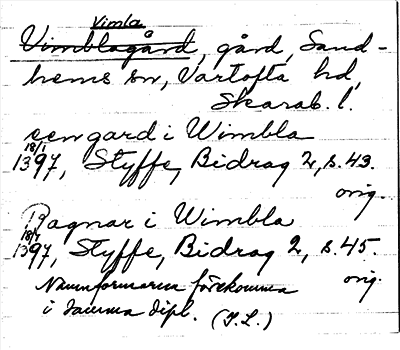 Vimla
Vimblagård, gård, Sand-
hems sn, Vartofta hd,
Skarab. l.
een gard i Wimbla
18/1 1397, Styffe, Bidrag 2, s. 43.
orig.
Ragnar i Wimbla
18/1 1397, Styffe, Bidrag 2, s. 45.
orig.
Namnformerna förekomma
i samma dipl. (I.L.)